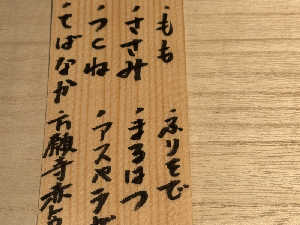 ・もも
・ささみ
・つくね
・てばなか
・ふりそで
・まるはつ
・アスパラ
・方願寺赤